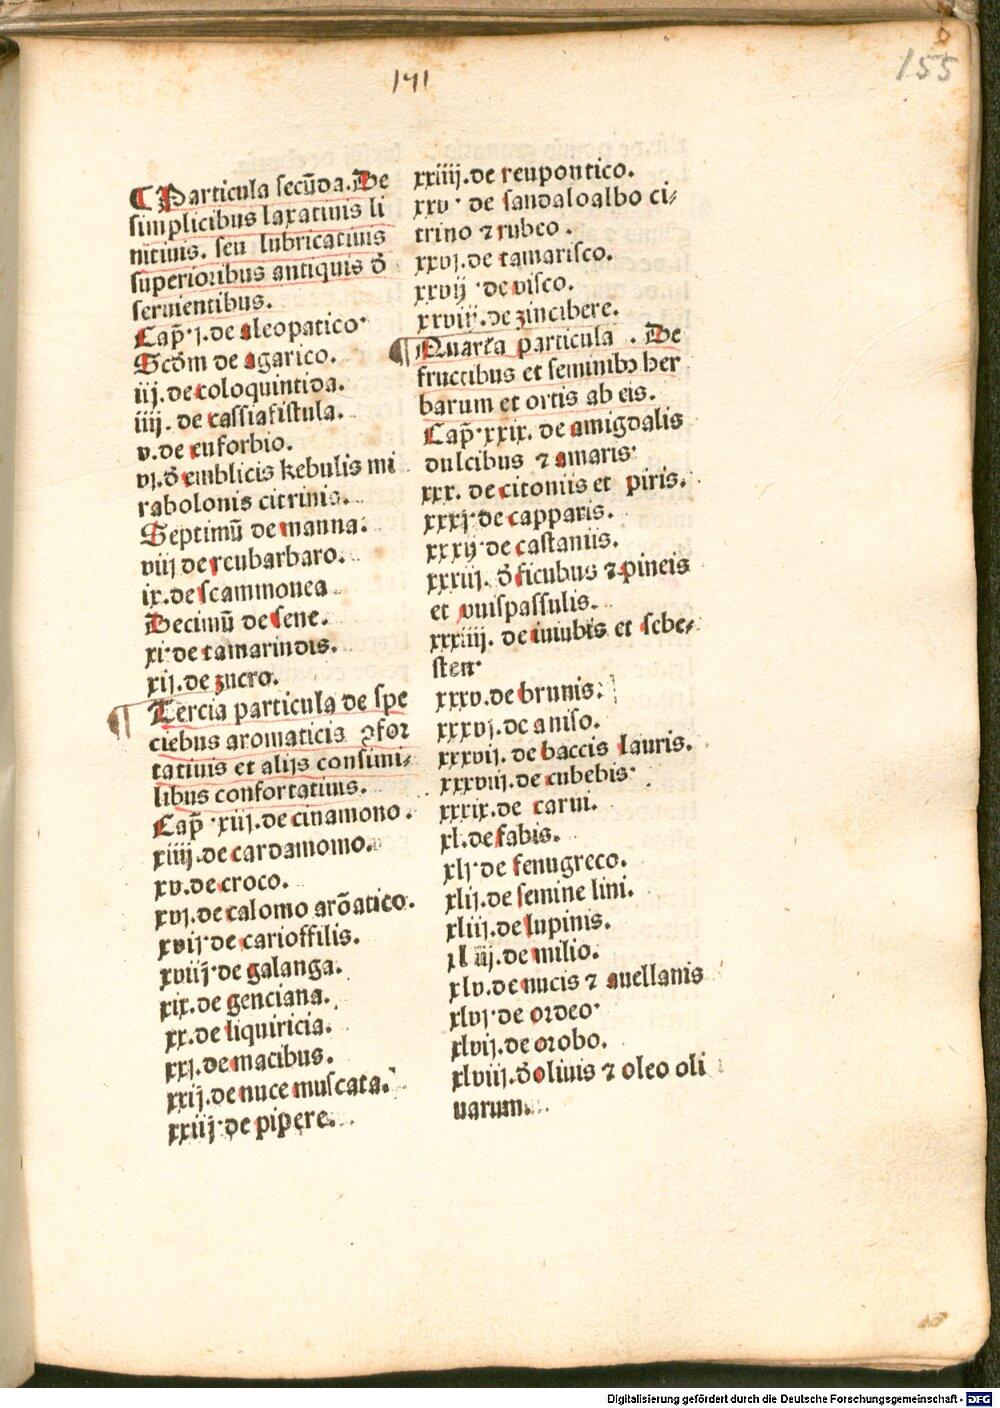 171
155
¶ Particula secūda. De
simplicibus laxatiuis li
nitiuis. seu lubricatiuis
superioribus antiquis đ
seruientibus.
Cap̄. j. de aleopatico.
Scđm de agarico.
iij. de coloquintida.
iiij. de cassiafistula.
v. de euforbio.
vj. đ emblicis kebulis mi
rabolonis citrinis.
Septimū de manna.
viij de reubarbaro.
ix. de scammonea
Decimū de sene.
xj. de tamarindis.
xij. de zucro.
¶ Tercia particula de spe
ciebus aromaticis ꝯfor
tatiuis et alijs consimi⸗
libus confortatiuis.
Cap̄. xiij. de cinamono.
xiiij. de cardamomo.
xv. de croco.
xvj. de calomo arōatico.
xvij de carioffilis.
xviij de galanga.
xix. de genciana.
xx. de liquiricia.
xxj. de macibus.
xxij. de nuce muscata.
xxiij de pipere.
xxiiij. de reupontico.
xxv. de sandaloalbo ci⸗
trino ⁊ rubeo.
xxvj. de tamarisco.
xxvij. de visco.
xxviij. de zincibere.
¶ Quarta particula. De
fructibus et seminibꝫ her
barum et ortis ab eis.
Cap̄. xxix. de amigdalis
dulcibus ⁊ amaris.
xxx. de citoniis et piris.
xxxj de capparis.
xxxij de castaniis.
xxxiij. đ ficubus ⁊ pineis
et vuispassulis.
xxxiiij. de iuiubis et sebe⸗
sten.
xxxv. de brunis.
xxxvj. de aniso.
xxxvij. de baccis lauris.
xxxviij. de cubebis.
xxxix. de carui.
xl. de fabis.
xlj de fenugreco.
xlij. de semine lini.
xliij. de lupinis.
xliiij. de milio.
xlv. de nucis ⁊ auellanis
xlvj de ordeo.
xlvij. de orobo.
xlviij. đ oliuis ⁊ oleo oli
uarum.
Digitalisierung gefördert durch die Deutsche Forschungsgemeinschaft - DFG